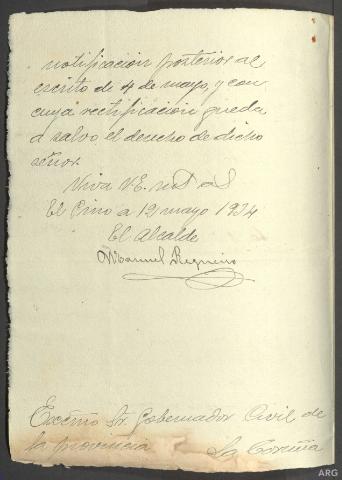 notificacion posterior al
escrito de 4 de mayo, y con
cuya rectificacion queda
a salvo el derecho de dicho
señor.
Viva V.E. m.s a.s
El Pino a 12 mayo 1934
El Alcalde
Manuel Regueiro
Excmo Sr. Gobernador Civil de
la provincia La Coruña
ARG